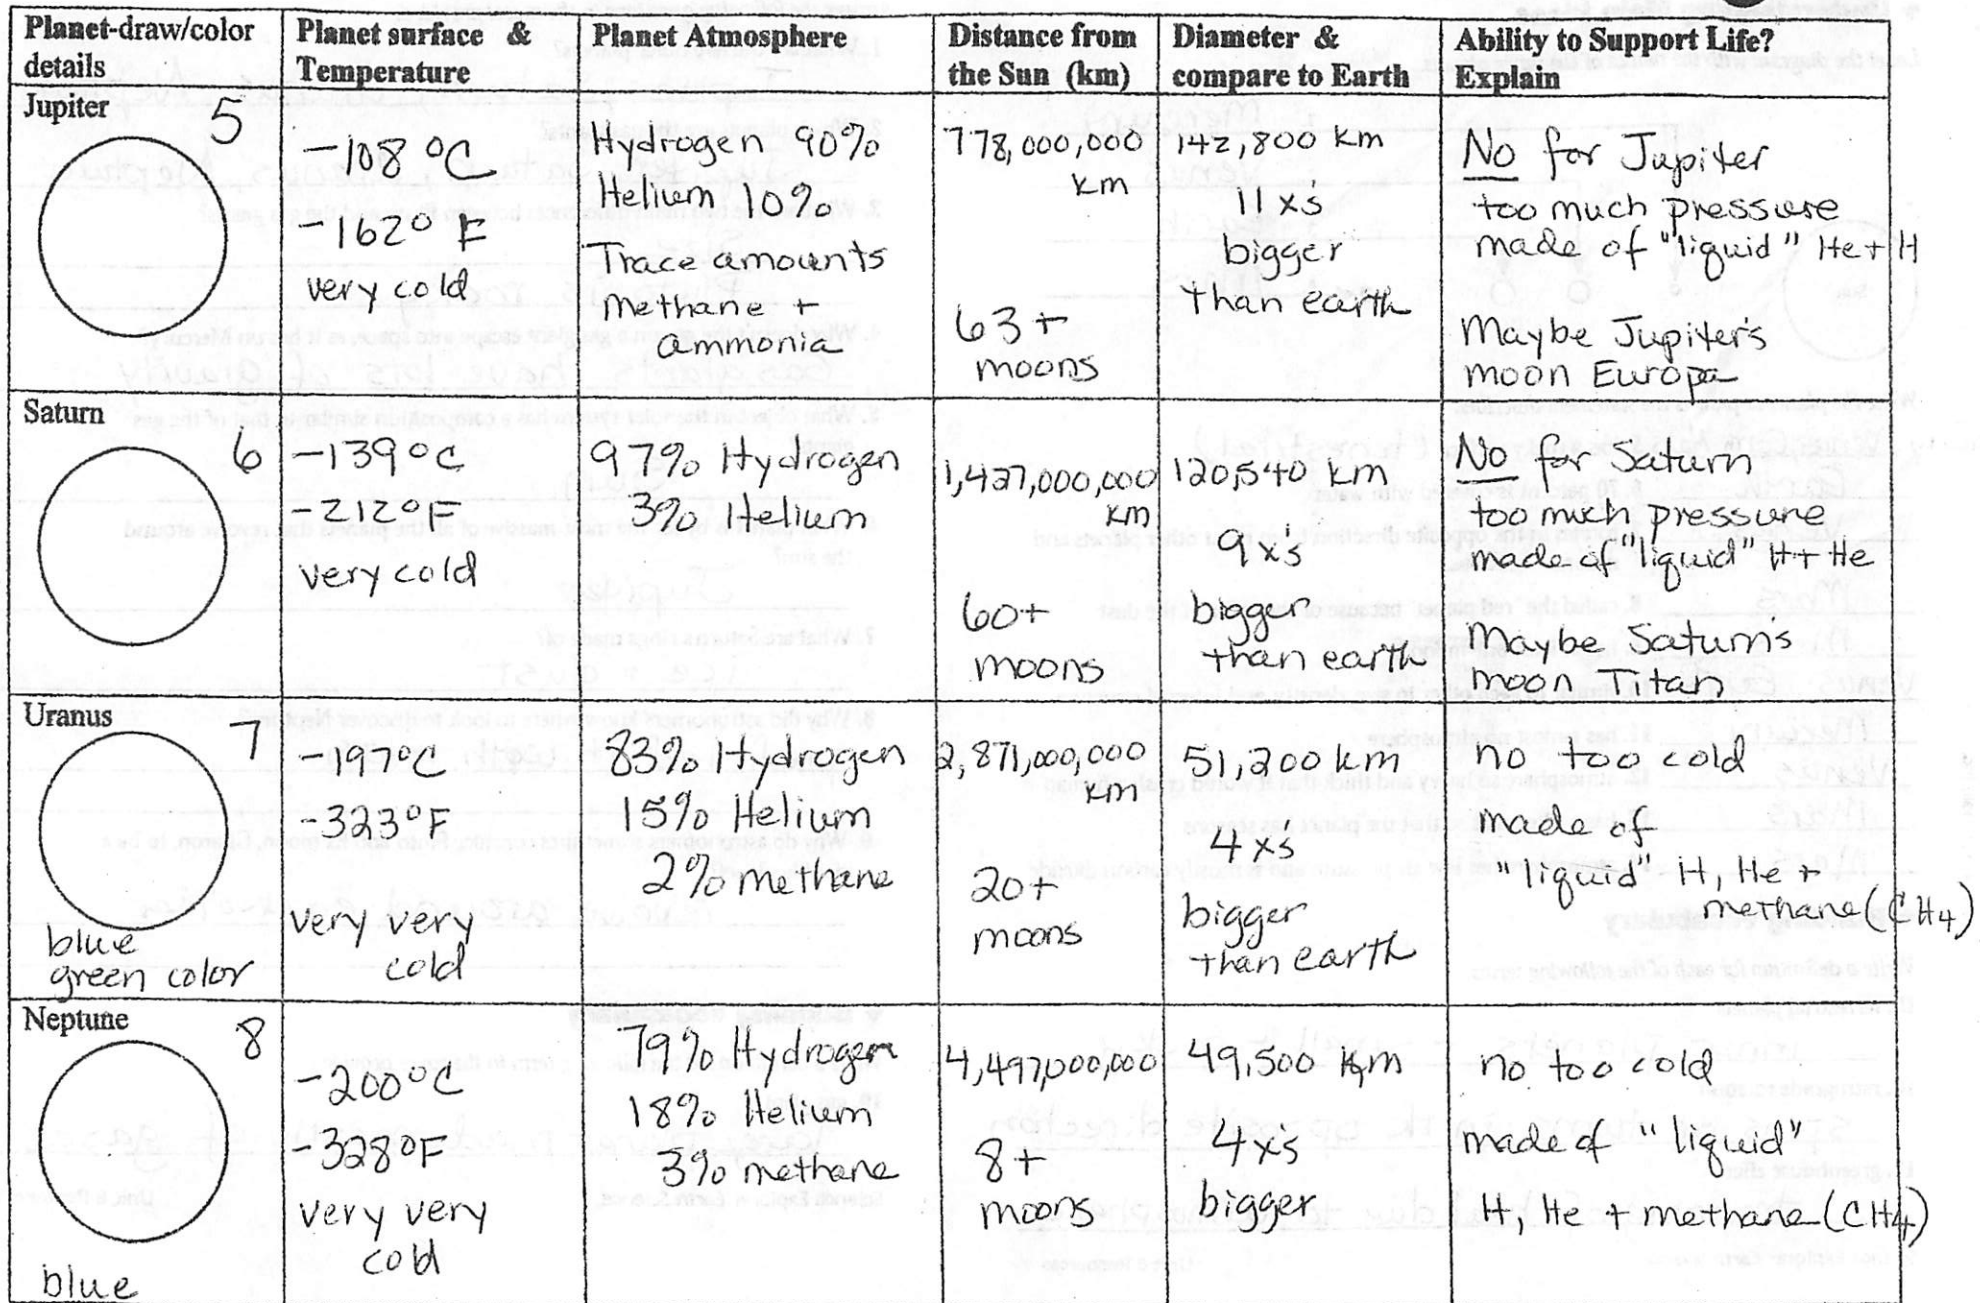 Planet-draw/color
details
Planet surface &
Temperature
Planet Atmosphere
Distance from
the Sun (km)
Diameter &
compare to Earth
Ability to Support Life?
Explain
Jupiter
5
-108 °C
-162° F
very cold
Hydrogen 90%
Helium 10%
Trace amounts
Methane +
ammonia
778,000,000
km
63+
moons
142,800 km
11 x's
bigger
than earth
No for Jupiter
too much pressure
made of "liquid" He + H
Maybe Jupiter's
moon Europa
Saturn
6
-139°C
-212°F
very cold
97% Hydrogen
3% Helium
1,427,000,000
km
60+
moons
120,540 km
9 x's
bigger
than earth
No for Saturn
too much pressure
made of "liquid" H + He
Maybe Saturn's
moon Titan
Uranus
7
blue
green color
-197°C
-323°F
very very
cold
83% Hydrogen
15% Helium
2% methane
2,871,000,000
km
20+
moons
51,200 km
4 x's
bigger
than earth
no too cold
made of
"liquid" H, He +
methane (CH4)
Neptune
8
blue
-200°C
-328°F
very very
cold
79% Hydrogen
18% Helium
3% methane
4,497,000,000
8+
moons
49,500 km
4x's
bigger
no too cold
made of "liquid"
H, He + methane (CH4)